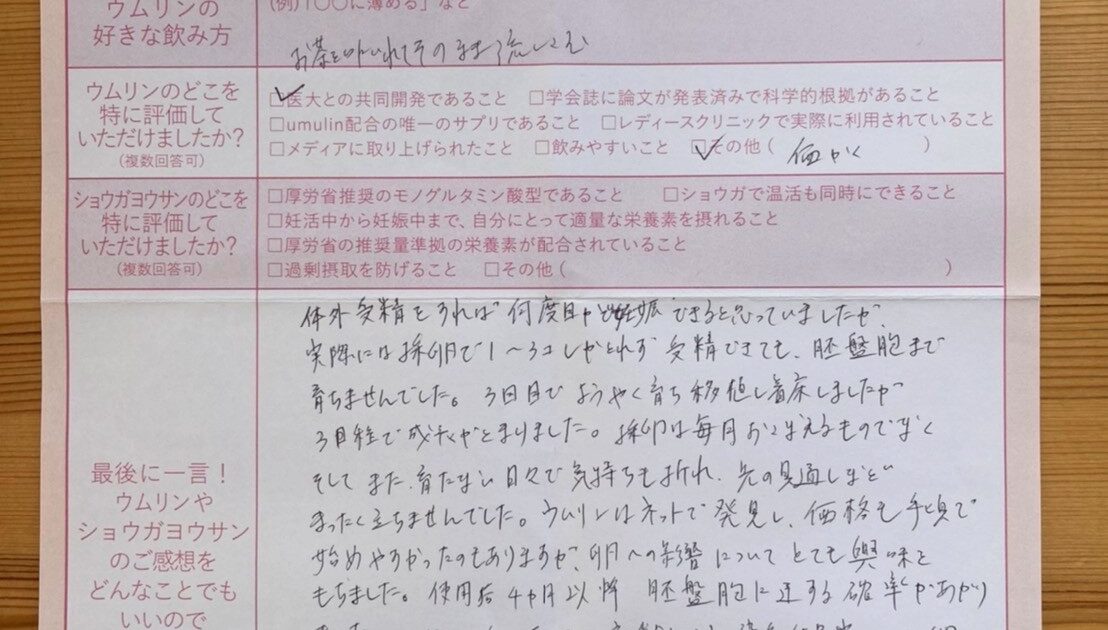 ウムリンの
好きな飲み方
(例)「○○に薄める」など
そのまま流しこむ
ウムリンのどこを
特に評価して
いただけましたか?
(複数回答可)
☑医大との共同開発であること □学会誌に論文が発表済みで科学的根拠があること
□umulin配合の唯一のサプリであること □レディースクリニックで実際に利用されていること
□メディアに取り上げられたこと □飲みやすいこと ☑その他( 価かく )
ショウガヨウサンのどこを
特に評価して
いただけましたか?
(複数回答可)
□厚労省推奨のモノグルタミン酸型であること □ショウガで温活も同時にできること
□妊活中から妊娠中まで、自分にとって適量な栄養素を摂れること
□厚労省の推奨量準拠の栄養素が配合されていること
□過剰摂取を防げること □その他( )
最後に一言!
ウムリンや
ショウガヨウサン
のご感想を
どんなことでも
いいので
体外受精をすれば何度目かで妊娠できると思っていましたが、
実際には採卵で1〜3コしかとれず受精できても、胚盤胞まで
育ちませんでした。3日目でようやく育ち移植し着床しましたが
3日程で成長がとまりました。採卵は毎月おこなえるものでなく
そしてまた、育たない日々で気持ちも折れ、先の見通しなど
まったく立ちませんでした。ウムリンはネットで発見し、価格も手頃で
始めやすかったのもありますが、卵への影響についてとても興味を
もちました。使用後4ヶ月以降 胚盤胞に達する確率があがり